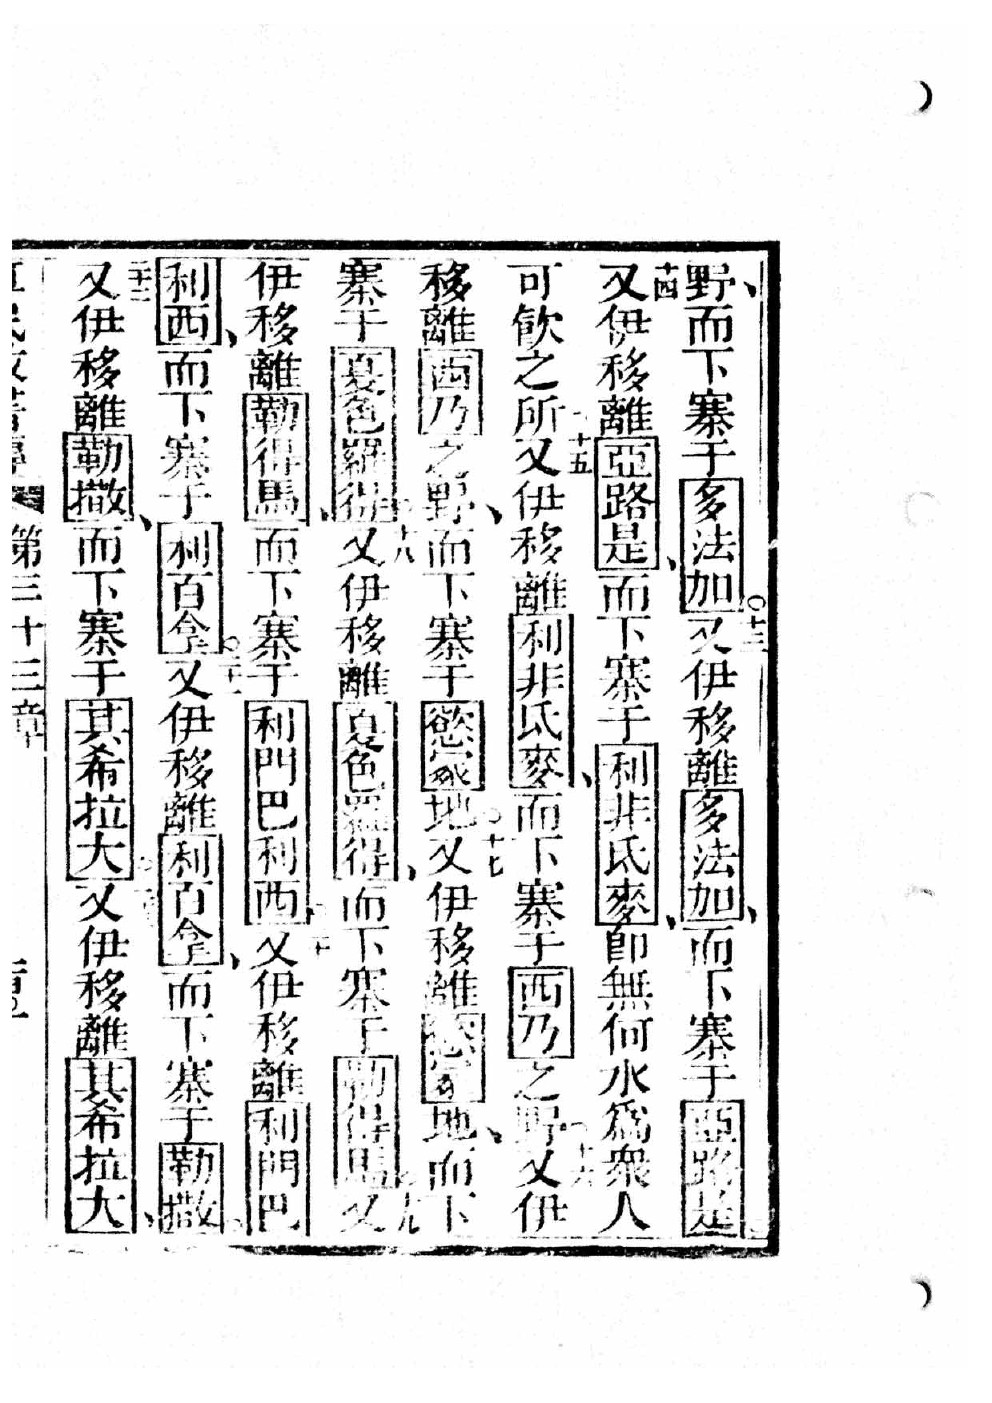 野、而下寨于多法加○十三又伊移離多法加、而下寨于亞路是
十四又伊移離亞路是、而下寨于利非氐麥、卽無何水爲衆人
可飲之所十五又伊移離利非氐麥、而下寨于西乃之野十六又伊
移離西乃之野、而下寨于慾冢地○十七又伊移離慾冢地、而下
寨于夏色羅得十八又伊移離夏色羅得、而下寨于勒得馬○十九又
伊移離勒得馬、而下寨于利門巴利西○二十又伊移離利門巴
利西、而下寨于利百拿○二十一又伊移離利百拿、而下寨于勒撒
二十二又伊移離勒撒、而下寨于其希拉大又伊移離其希拉大、
第三十三章